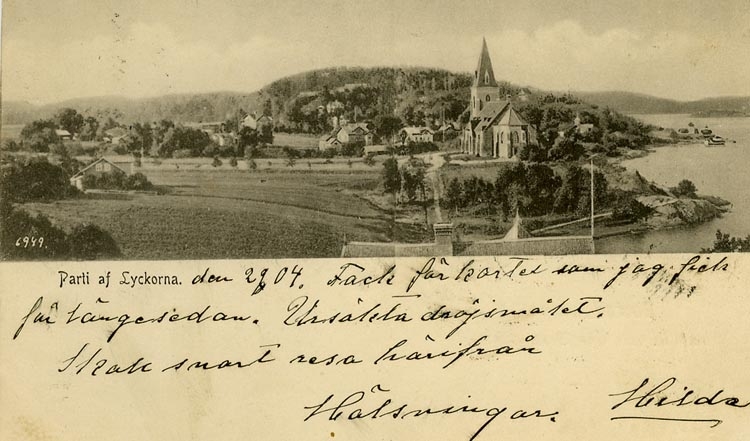 6949.
Parti af Lyckorna. den 2/8 04. Tack för kortet som jag fick
för längesedan. Ursäkta dröjsmålet.
Skall snart resa härifrån
Hälsningar. Hilda